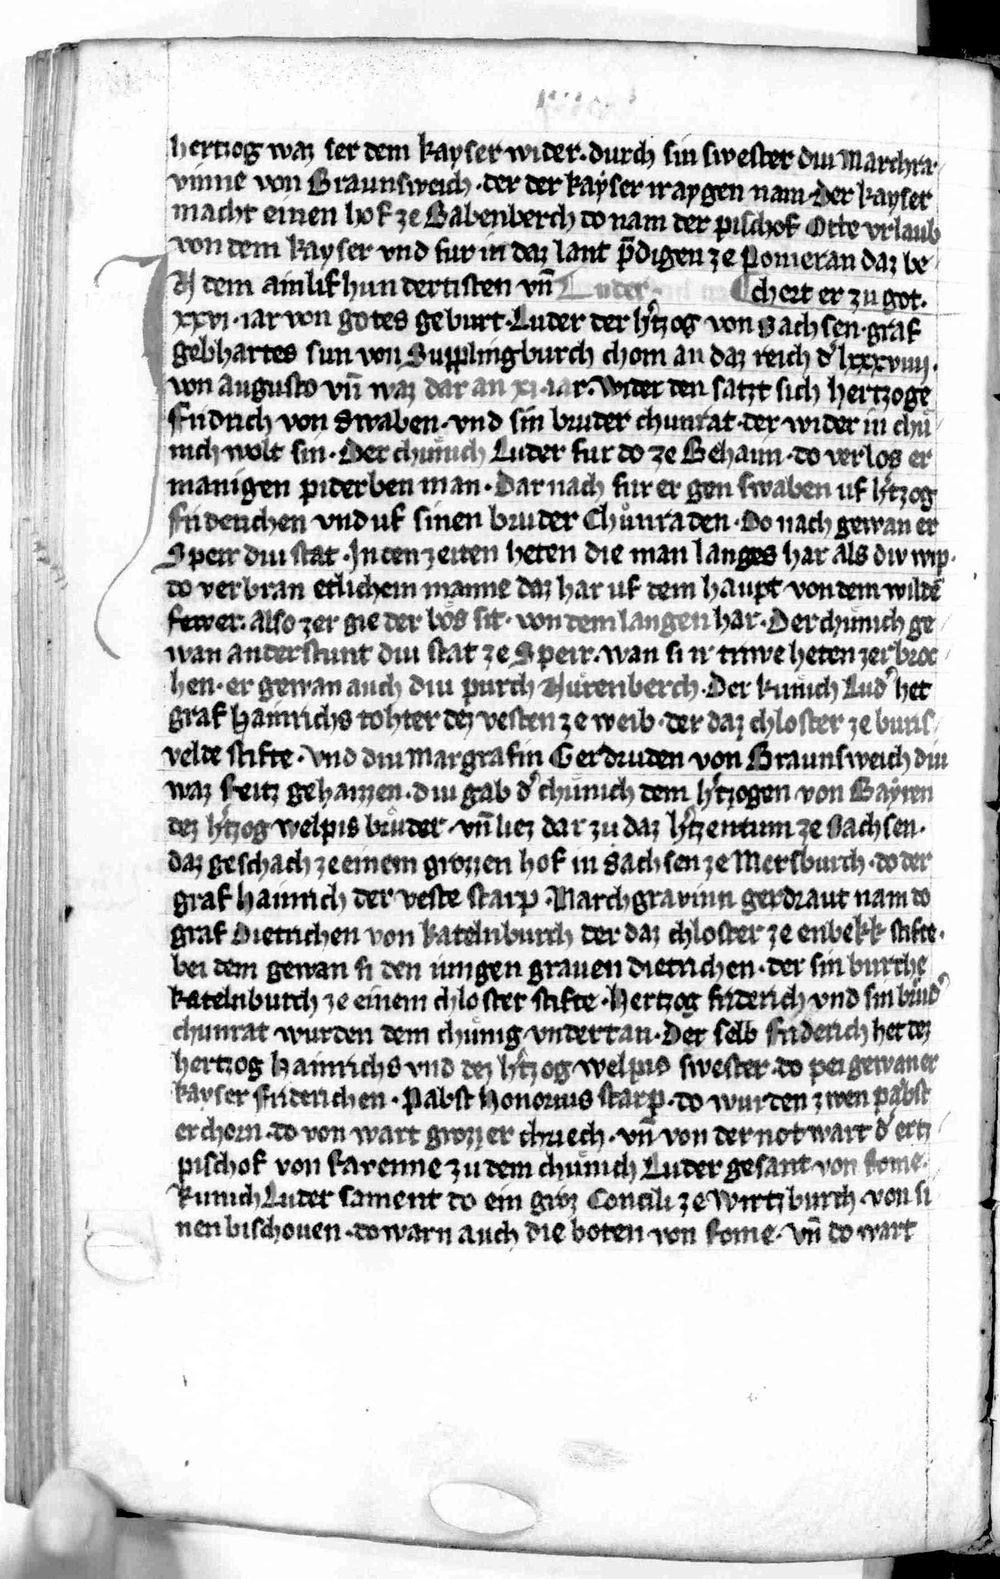 hertzog waz ser dem kayser wider · durch sin swester diu Marchra-
vinne von Braunsweich · der der kaẏser ir aygen nam · Der kayser
macht einen hof ze Babenberch do nam der pischof Otte vrlaub
von dem kayser vnd fur in daz lant p̄digen ze Pomeran daz be-
N dem ainlifhundertisten vn̄ Luder · chert er zu got.
xxvi · iar von gotes geburt · Luder der h̾tzog von Sachsen · graf
gebhartes sun von Supplingburch chom an daz reich d̾ lxxxviiij ·
von augusto vn̄ waz dar an xi · iar · wider den satzt sich hertzoge
Fridrich von Swaben · vnd sin bruder chunrat · der wider in chu-
nich wolt sin · Der chunich Luder fur do ze Behaim · do verlos er
manigen piderben man · Dar nach fur er gen swaben uf h̾tzog
Fridenchen vnd uf sinen bruder Chůnraden · Do nach gewan er
Speir diu stat · In den zeiten heten die man langes har als diu wip ·
do verbran etlichem manne daz har uf dem haupt · von dem wilden̄
fewer · also zer gie der bös sit · von dem langen har · Der chunich ge-
wan anderstunt diu stat ze Speir · wan si ir triwe heten zerbroc-
hen · er gewan auch diu purch Nůrenberch · Der kunich Lud̾ het
graf Hainrichs tohter dez vesten ze weib · der daz chloster ze burs-
velde stifte · vnd diu Margrafin Gerdruden von Braunsweich diu
waz seitz gehaizzen · diu gab d̾ chunich dem h̾tzogen von Bayren
dez h̾tzog welpis brůder · vn̄ liez dar zu daz h̾tzentum ze Sachsen ·
daz geschach ze einem grozzen hof in Sachsen ze Mersburch · do der
graf hainrich der veste starp · Marchgravinn gerdraut nam do
graf Dietrichen von katelnburch der daz chloster ze enbekk stifte ·
bei dem gewan si den iungen graven dietrichen · der sin burche
katelnburch ze einem chloster stifte · Hertzog friderich vnd sin brůd̾
chunrat wurden dem chunig vndertan · Der selb Friderich het dez
hertzog Hainrichs vnd dez h̾tzog welpis swester · do pei gewan er
kayser Friderichen · Pabst Honorius starp · do wurden zwen pabst
erchorn · do von wart grozzer chriech · vn̄ von der not wart d̾ ertz-
pischof von Ravenne zu dem chunich Luder gesant von Rome ·
kunich Luder sament do ein groz Concili ze Wirtzburch · von si-
nen bischoven · do warn auch die boten von Rome · vn̄ do wart